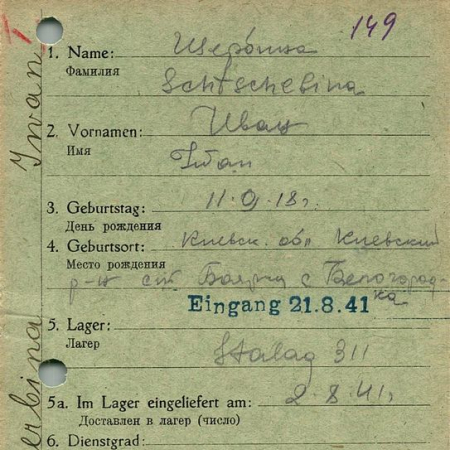 149
1. Name: Щербина
Фамилия
Schtscherbina
2. Vornamen: Иван
Имя
Iwan
3. Geburtstag: 11.9.18 г.
День рождения
4. Geburtsort: Киевск. обл Киевский
Место рождения
р-н ст. Боярка с Белогород-
ка
Eingang 21.8.41
5. Lager:
Лагер
Stalag 311
5a. Im Lager eingeliefert am: 2.8.41 г.
Доставлен в лагер (число)
6. Dienstgrad:
Iwan
erbina